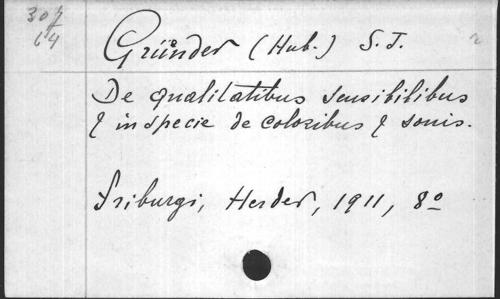 307
64
Gründer (Hub.) S. J.
De qualitatibus sensibilibus
& in specie de coloribus & sonis.
Friburgi, Herder, 1911, 8º